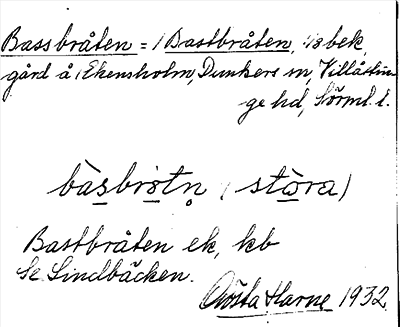 Bassbråten = / Bastbråten, 1/8 bek.
gård å / Ekensholm, Dunkers sn, Villåttin-
ge hd, Sörml. l.
bàsbrotn̥ (stòra)
Bastbråten ek, kb
Se Lindbäcken.
Gösta Harne 1932.